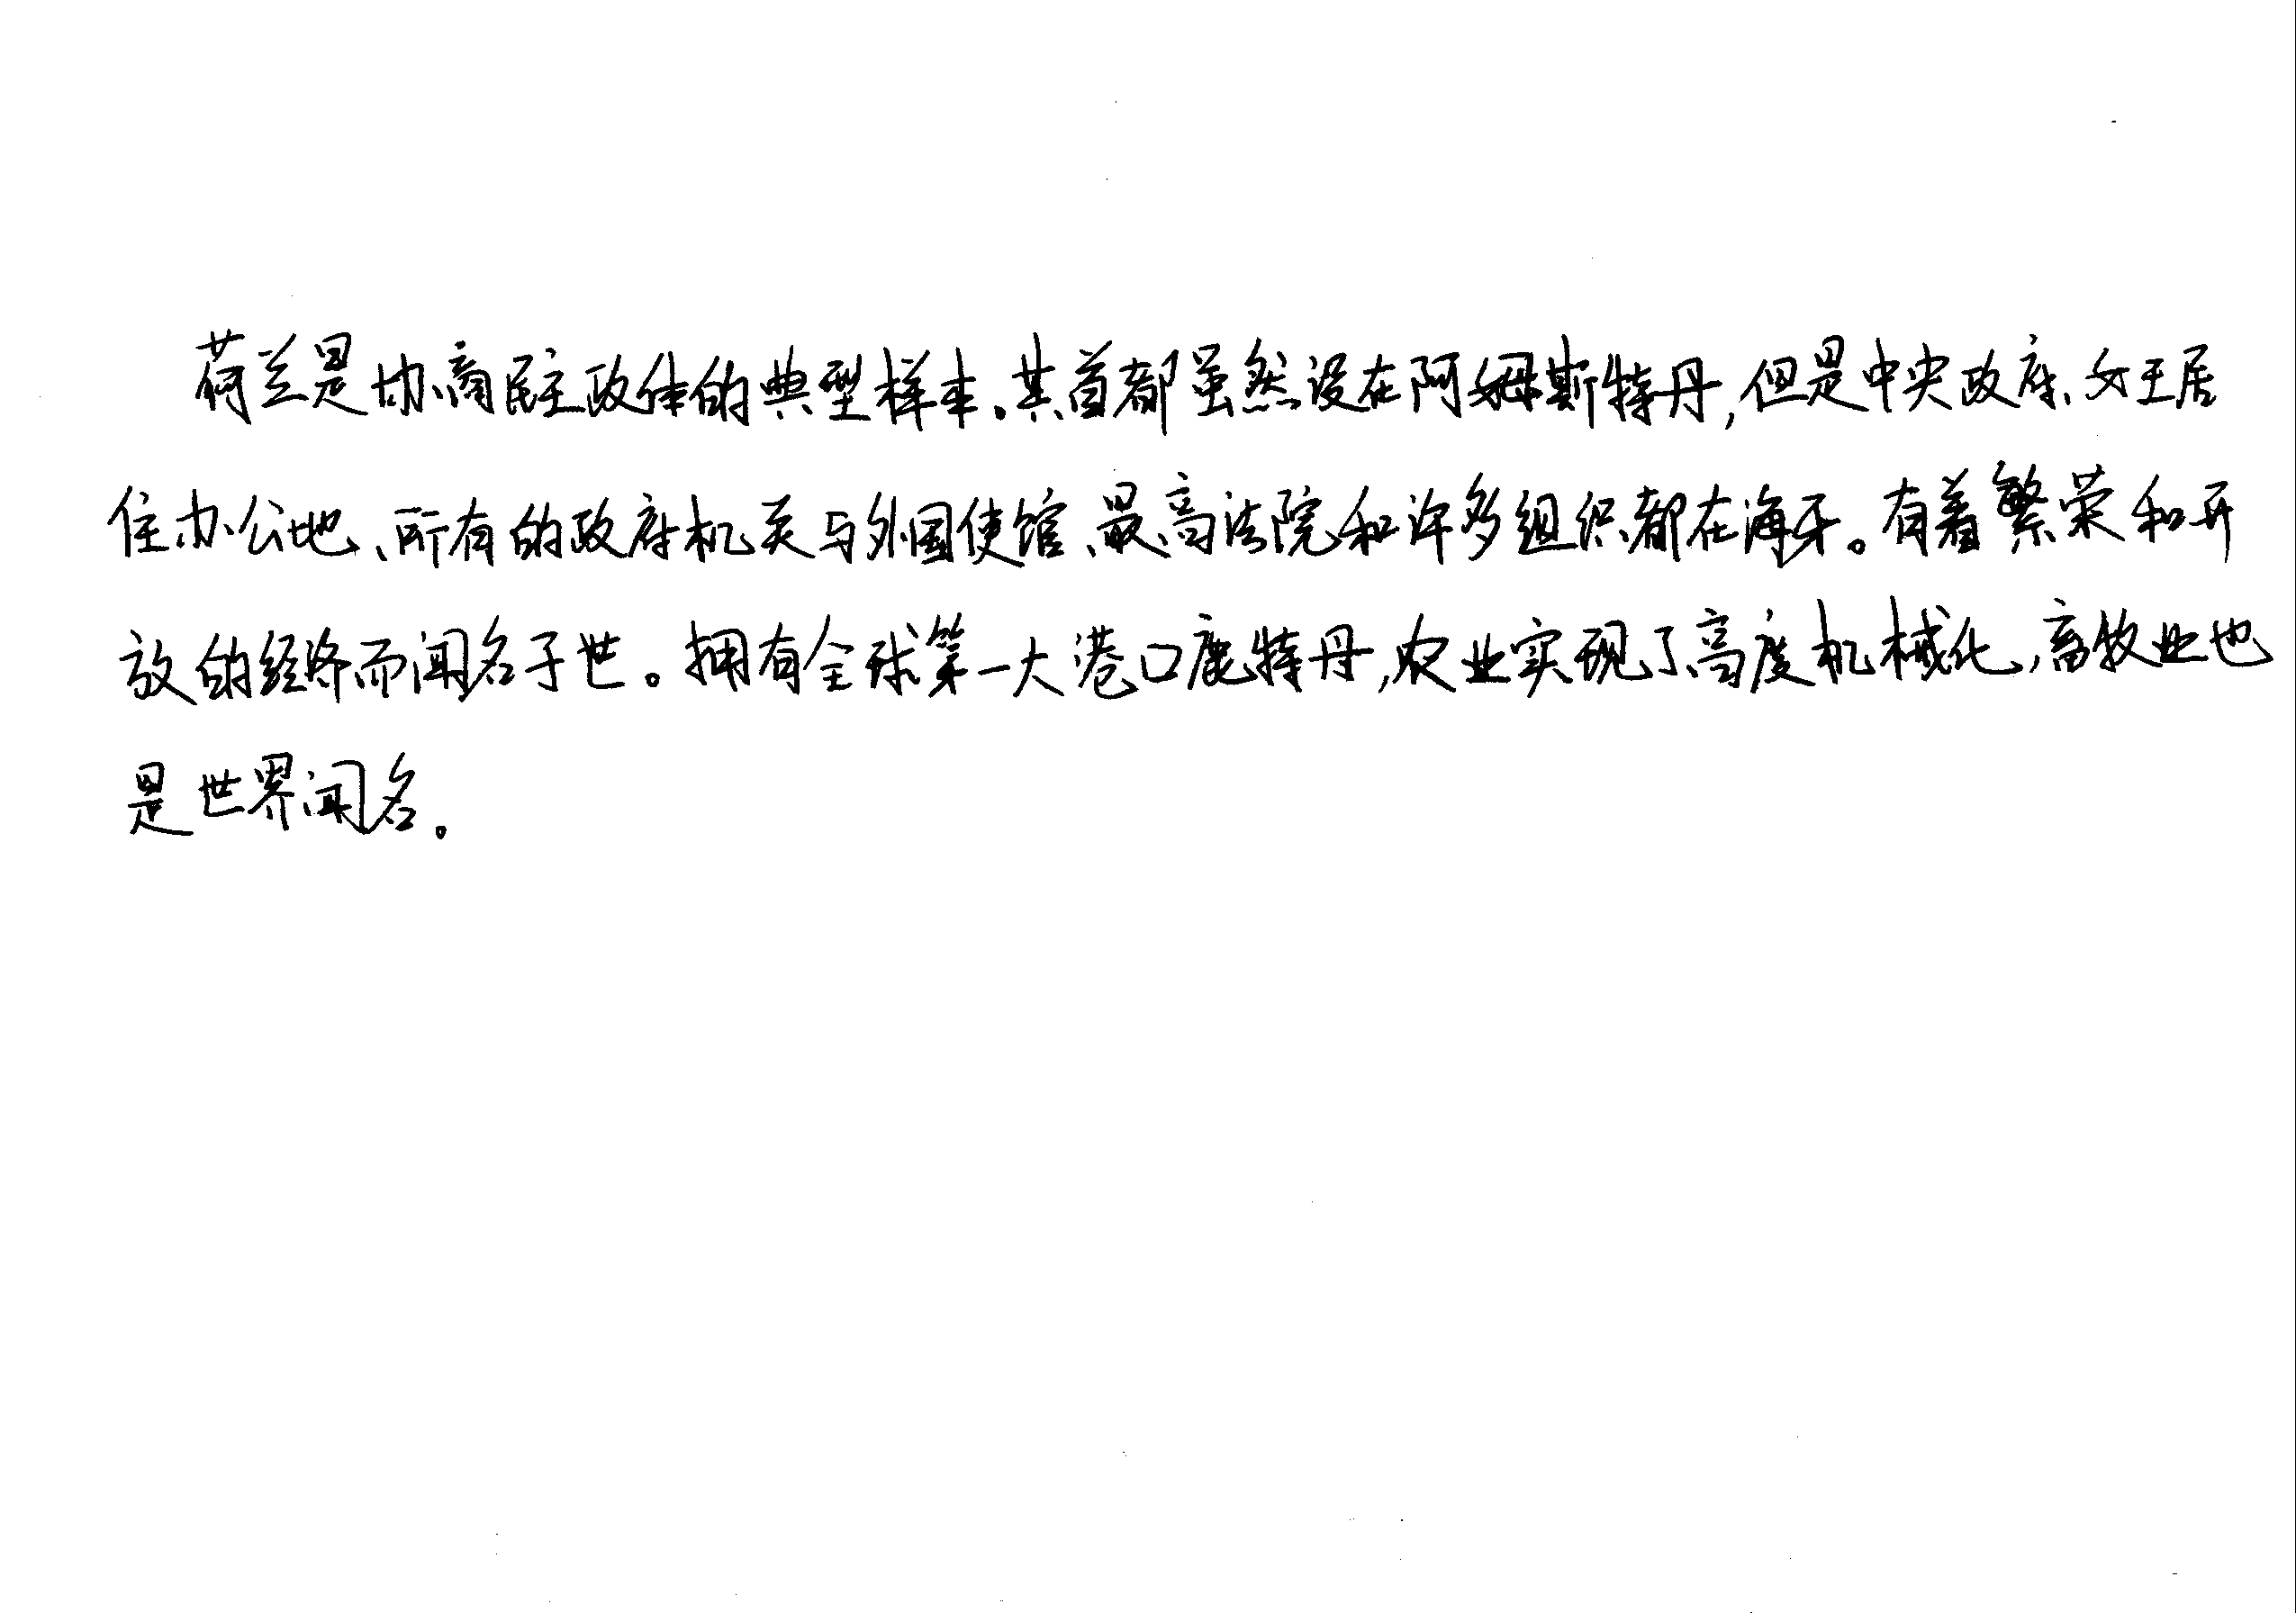 荷兰是协商民主政体的典型样本。其首都虽然设在阿姆斯特丹,但是中央政府、女王居
住办公地、所有的政府机关与外国使馆、最高法院和许多组织都在海牙。有着繁荣和开
放的经济而闻名于世。拥有全球第一大港口鹿特丹,农业实现了高度机械化,畜牧业也
是世界闻名。